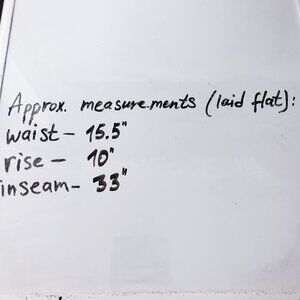 Approx. measurements (laid flat):
waist - 15.5"
rise - 10"
inseam - 33"